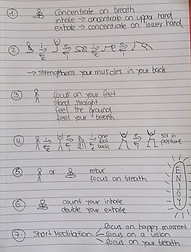 1 Concentrate on breath
inhale → concentrate on upper hand
exhale → concentrate on lower hand
2.
→ strengthens your muscles in your back
3 focus on your feet
stand straight
feel the ground
feel your breath
4.
sit in
posture
5. or relax
focus on breath
6. count your inhale
double your exhale
7. Short Meditation: focus on happy moment
focus on a vision
focus on your breath
ENJOY